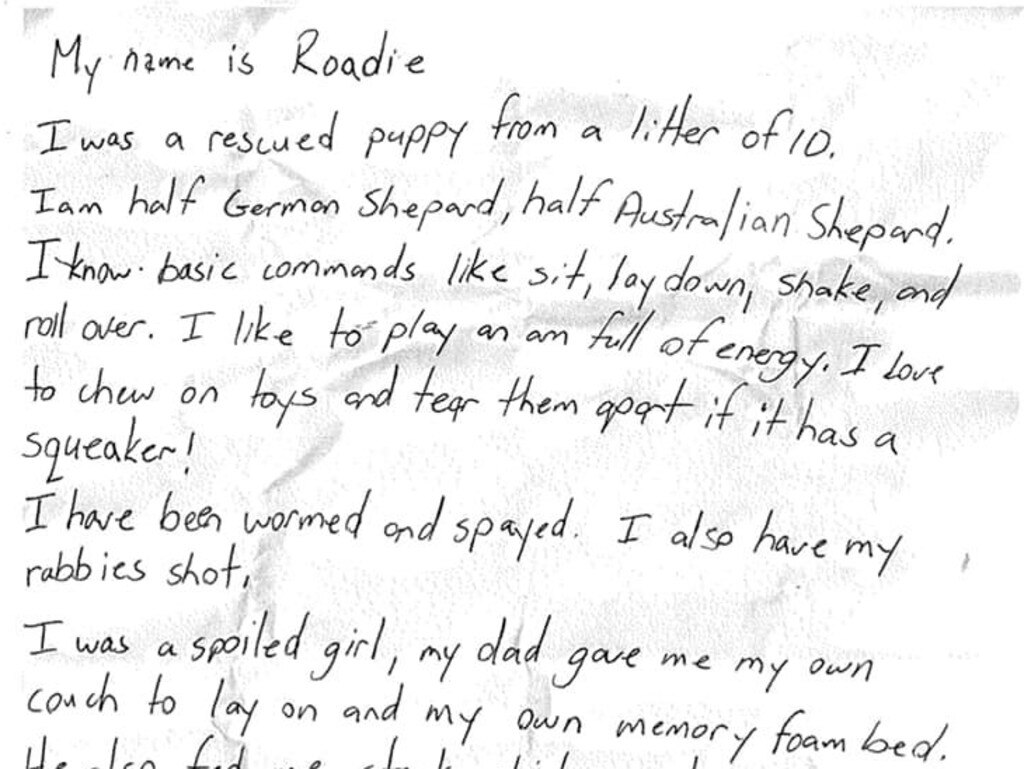 My name is Roadie
I was a rescued puppy from a litter of 10.
I am half German Shepard, half Australian Shepard.
I know basic commands like sit, lay down, shake, and
roll over. I like to play an am full of energy. I love
to chew on toys and tear them apart if it has a
squeaker!
I have been wormed and spayed. I also have my
rabbies shot.
I was a spoiled girl, my dad gave me my own
couch to lay on and my own memory foam bed.
He also fed me